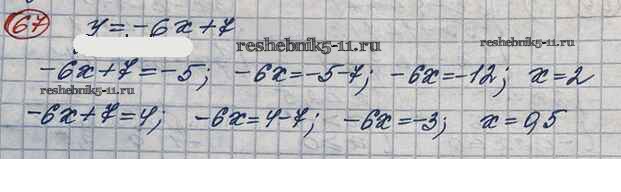 67 y = -6x + 7
reshebnik5-11.ru
reshebnik5-11.ru
-6x + 7 = -5; -6x = -5 - 7; -6x = -12; x = 2
reshebnik5-11.ru
-6x + 7 = 4; -6x = 4 - 7; -6x = -3; x = 0,5